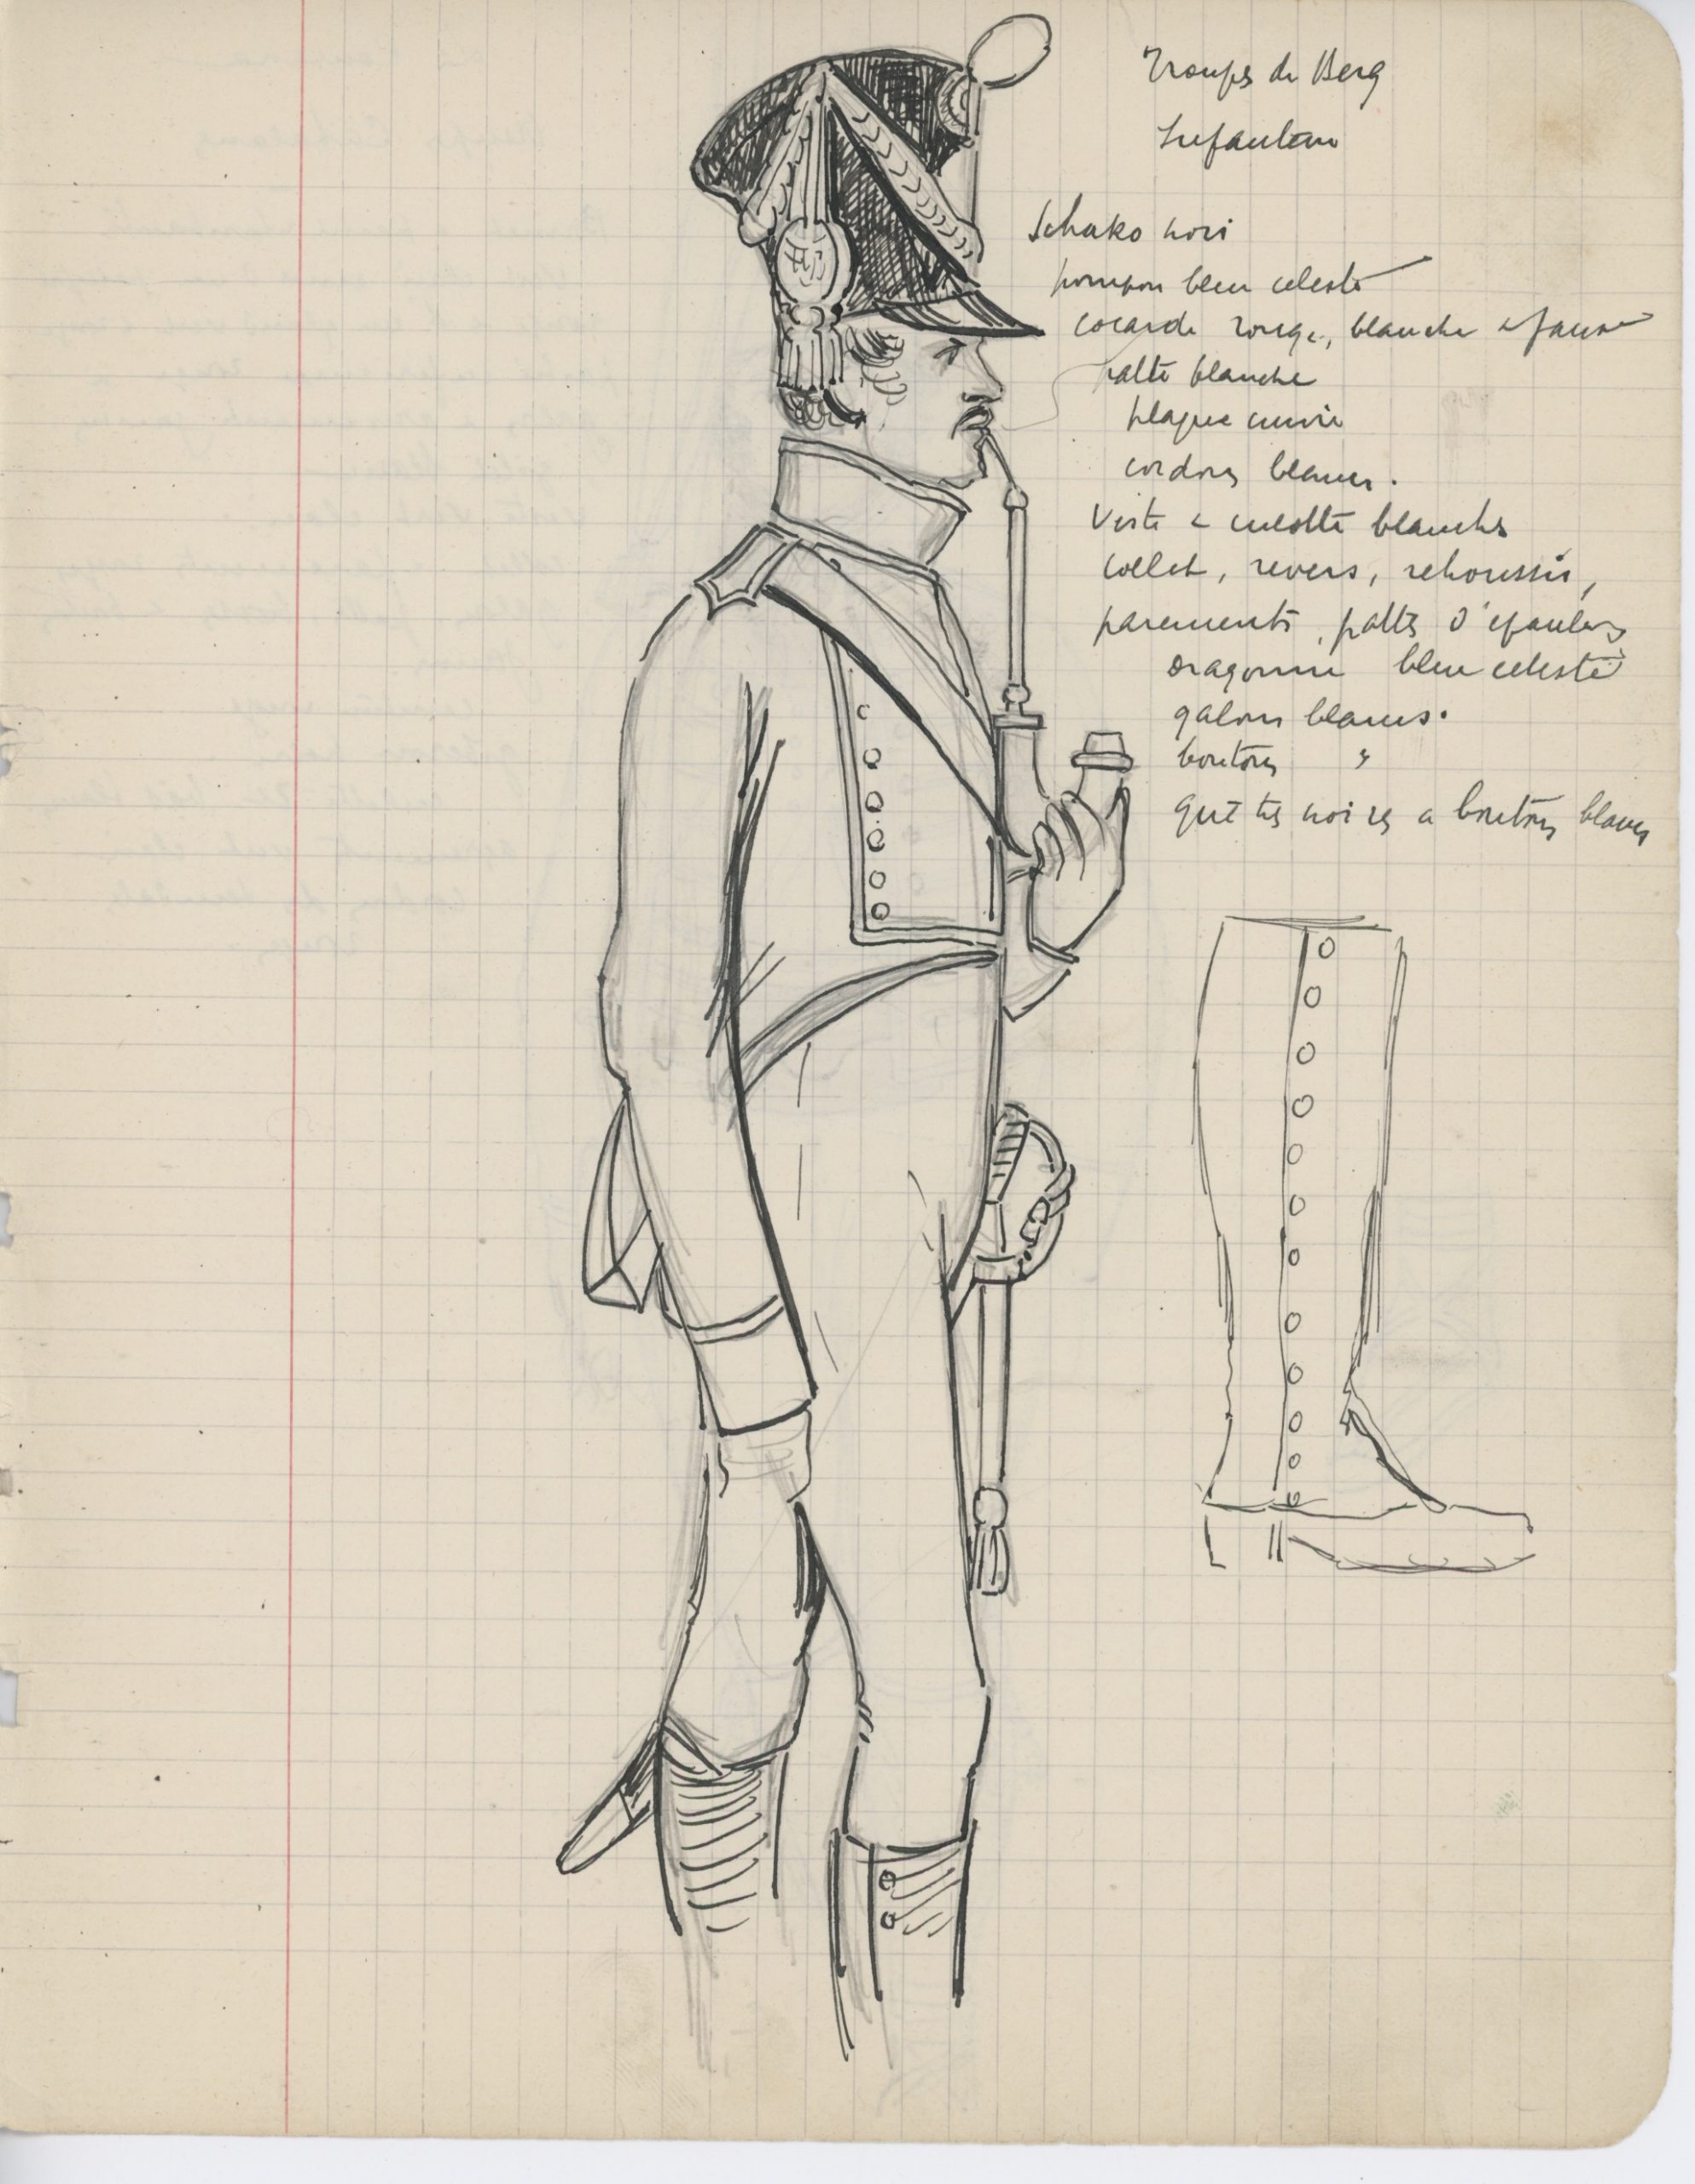 Troupes de Berg
Infanterie
Schako noir
pompon bleu celeste
cocarde rouge, blanche
patte blanche
plaque cuivre
cordons blancs.
Veste & culotte blanches
collet, revers, retroussis,
parements, pattes d'epaules
dragonne bleu celeste
galons blancs.
boutons "
guêtres noires a boutons blancs